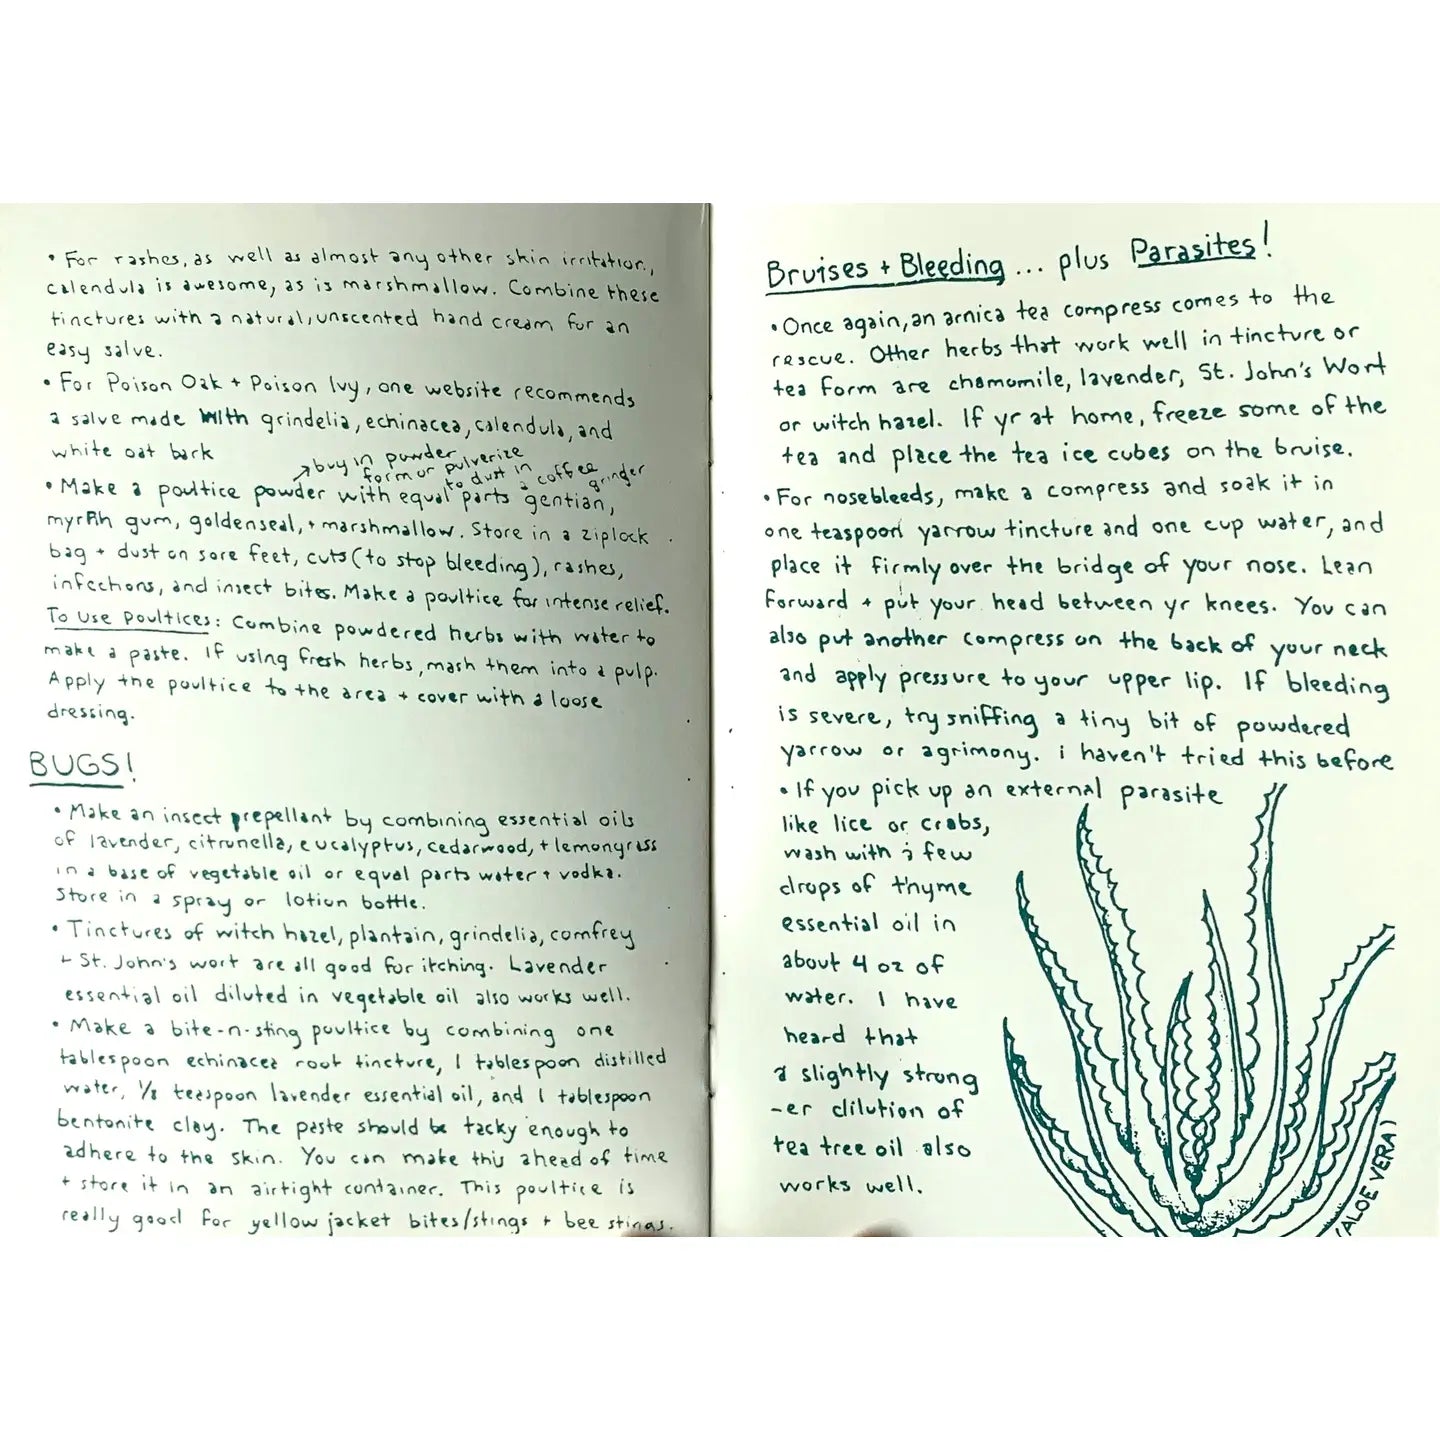 • For rashes, as well as almost any other skin irritation,
calendula is awesome, as is marshmallow. Combine these
tinctures with a natural, unscented hand cream for an
easy salve.
• For Poison Oak + Poison Ivy, one website recommends
a salve made with grindelia, echinacea, calendula, and
white oat bark
→ buy in powder
form or pulverize
to dust in
a coffee
grinder
• Make a poultice powder with equal parts gentian,
myrRh gum, goldenseal, + marshmallow. Store in a ziplock
bag + dust on sore feet, cuts (to stop bleeding), rashes,
infections, and insect bites. Make a poultice for intense relief.
To Use Poultices: Combine powdered herbs with water to
make a paste. If using fresh herbs, mash them into a pulp.
Apply the poultice to the area + cover with a loose
dressing.
BUGS!
• Make an insect repellant by combining essential oils
of lavender, citronella, eucalyptus, cedarwood, + lemongrass
in a base of vegetable oil or equal parts water + vodka.
Store in a spray or lotion bottle.
• Tinctures of witch hazel, plantain, grindelia, comfrey
+ St. John's wort are all good for itching. Lavender
essential oil diluted in vegetable oil also works well.
• Make a bite-n-sting poultice by combining one
tablespoon echinacea root tincture, 1 tablespoon distilled
water, 1/8 teaspoon lavender essential oil, and 1 tablespoon
bentonite clay. The paste should be tacky enough to
adhere to the skin. You can make this ahead of time
+ store it in an airtight container. This poultice is
really good for yellow jacket bites/stings + bee stings.
Bruises + Bleeding ... plus Parasites!
• Once again, an arnica tea compress comes to the
rescue. Other herbs that work well in tincture or
tea form are chamomile, lavender, St. John's Wort
or witch hazel. If yr at home, freeze some of the
tea and place the tea ice cubes on the bruise.
• For nosebleeds, make a compress and soak it in
one teaspoon yarrow tincture and one cup water, and
place it firmly over the bridge of your nose. Lean
forward + put your head between yr knees. You can
also put another compress on the back of your neck
and apply pressure to your upper lip. If bleeding
is severe, try sniffing a tiny bit of powdered
yarrow or agrimony. i haven't tried this before
• If you pick up an external parasite
like lice or crabs,
wash with a few
drops of thyme
essential oil in
about 4 oz of
water. I have
heard that
a slightly strong
-er dilution of
tea tree oil also
works well.
(ALOE VERA)